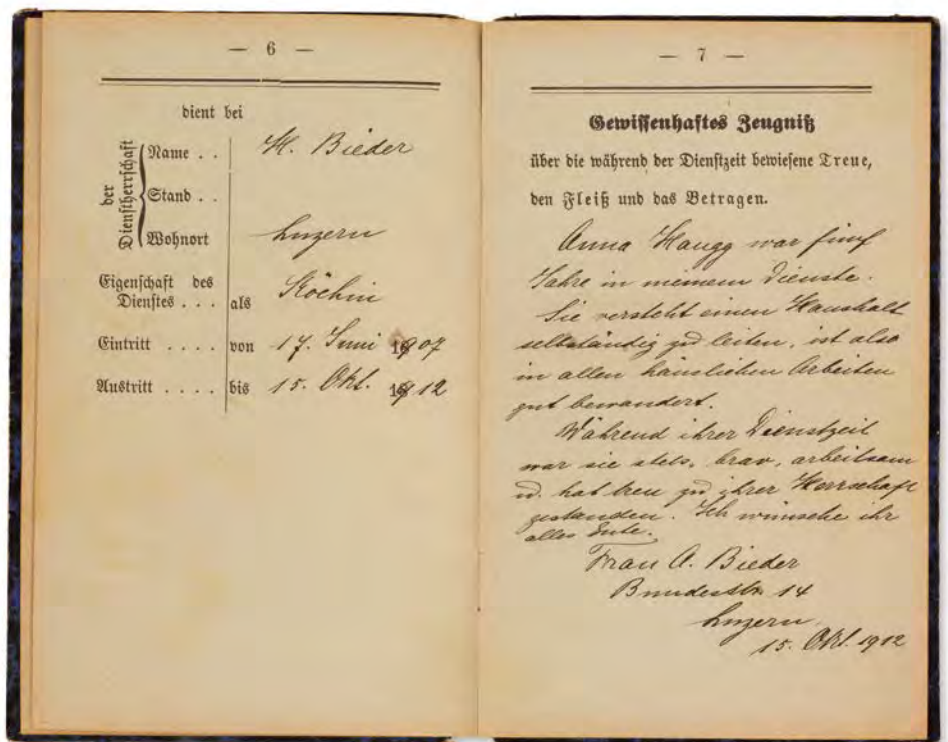 — 6 —
dient bei
der Dienstherrschaft
Name . . H. Bieder
Stand . .
Wohnort Luzern
Eigenschaft des
Dienstes . . . als Köchin
Eintritt . . . . von 17. Juni 1907
Austritt . . . . bis 15. Okt. 1912
— 7 —
Gewissenhaftes Zeugniß
über die während der Dienstzeit bewiesene Treue,
den Fleiß und das Betragen.
Anna Haugg war fünf
Jahre in meinem Dienste.
Sie versteht einen Haushalt
selbständig zu leiten, ist also
in allen häuslichen Arbeiten
gut bewandert.
Während ihrer Dienstzeit
war sie stets, brav, arbeitsam
u. hat treu zu ihrer Herrschaft
gestanden. Ich wünsche ihr
alles Gute.
Frau A. Bieder
Bundesstr. 14
Luzern,
15. Okt. 1912